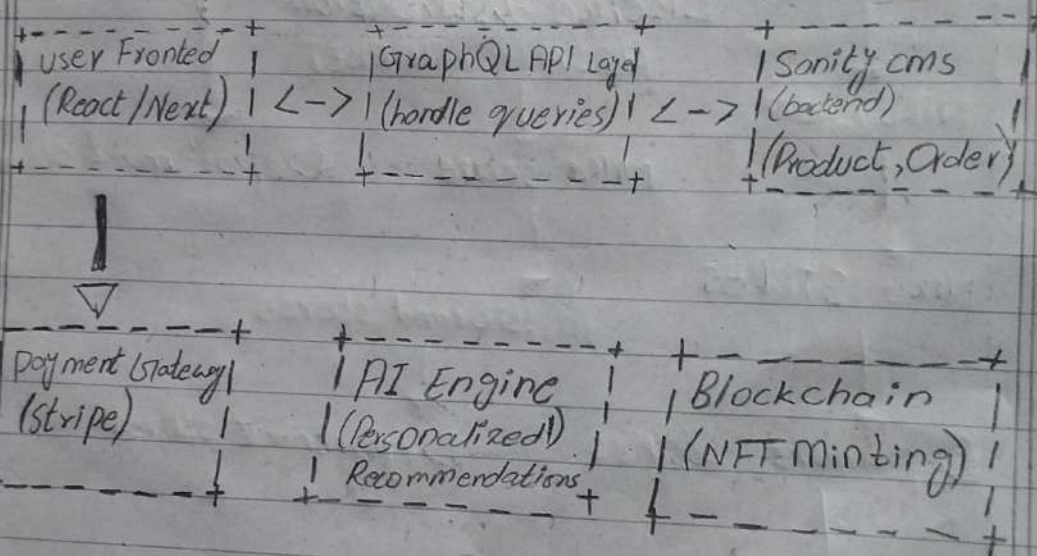 User Fronted
(React/Next)
<->
GraphQL API Layer
(handle queries)
<->
Sanity cms
(backend)
(Product, Order)
payment Gateway
(stripe)
AI Engine
(Personalized)
Recommendations
Blockchain
(NFT Minting)